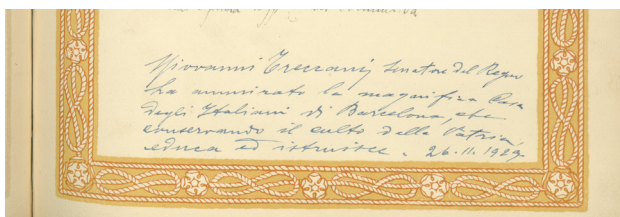 Giovanni Treccani, senatore del Regno
ha ammirato la magnifica Casa
degli Italiani di Barcelona, che
conservando il culto della Patria,
educa ed istruisce. 26.11.1929.